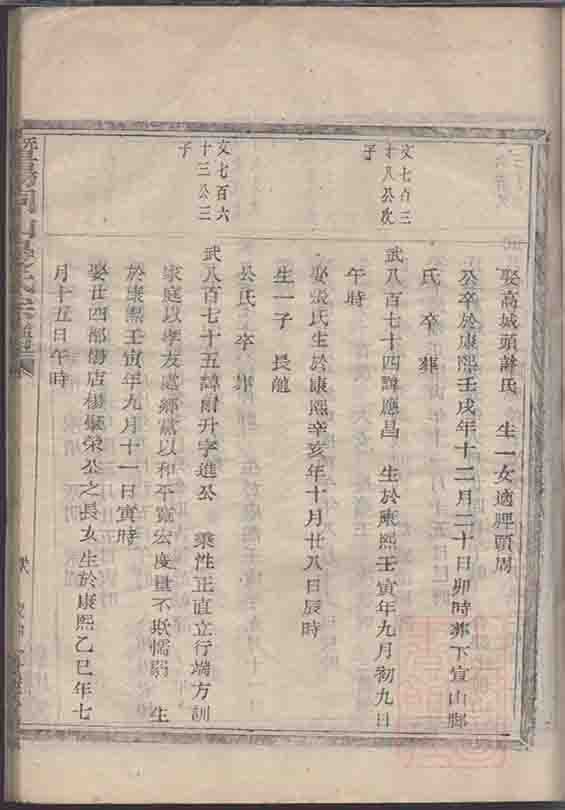 娶高城頭許氏　生一女適押頭周
公卒於康熙壬戌年十二月二十日卯時葬下宣山腳
氏　卒　葬
文七百三
十八公次
子
武八百七十四諱應昌　生於康熙壬寅年九月初九日
午時
娶張氏生於康熙辛亥年十月廿八日辰時
生一子　長
公　氏　卒　葬
文七百六
十三公三
子
武八百七十五諱爾升字進公　秉性正直立行端方訓
家庭以孝友處鄉黨以和平寬宏度量不欺懦弱　生
於康熙壬寅年九月十一日寅時
娶廿四都楊店楊聚榮公之長女生於康熙乙巳年七
月十五日午時
暨陽同山
氏宗譜